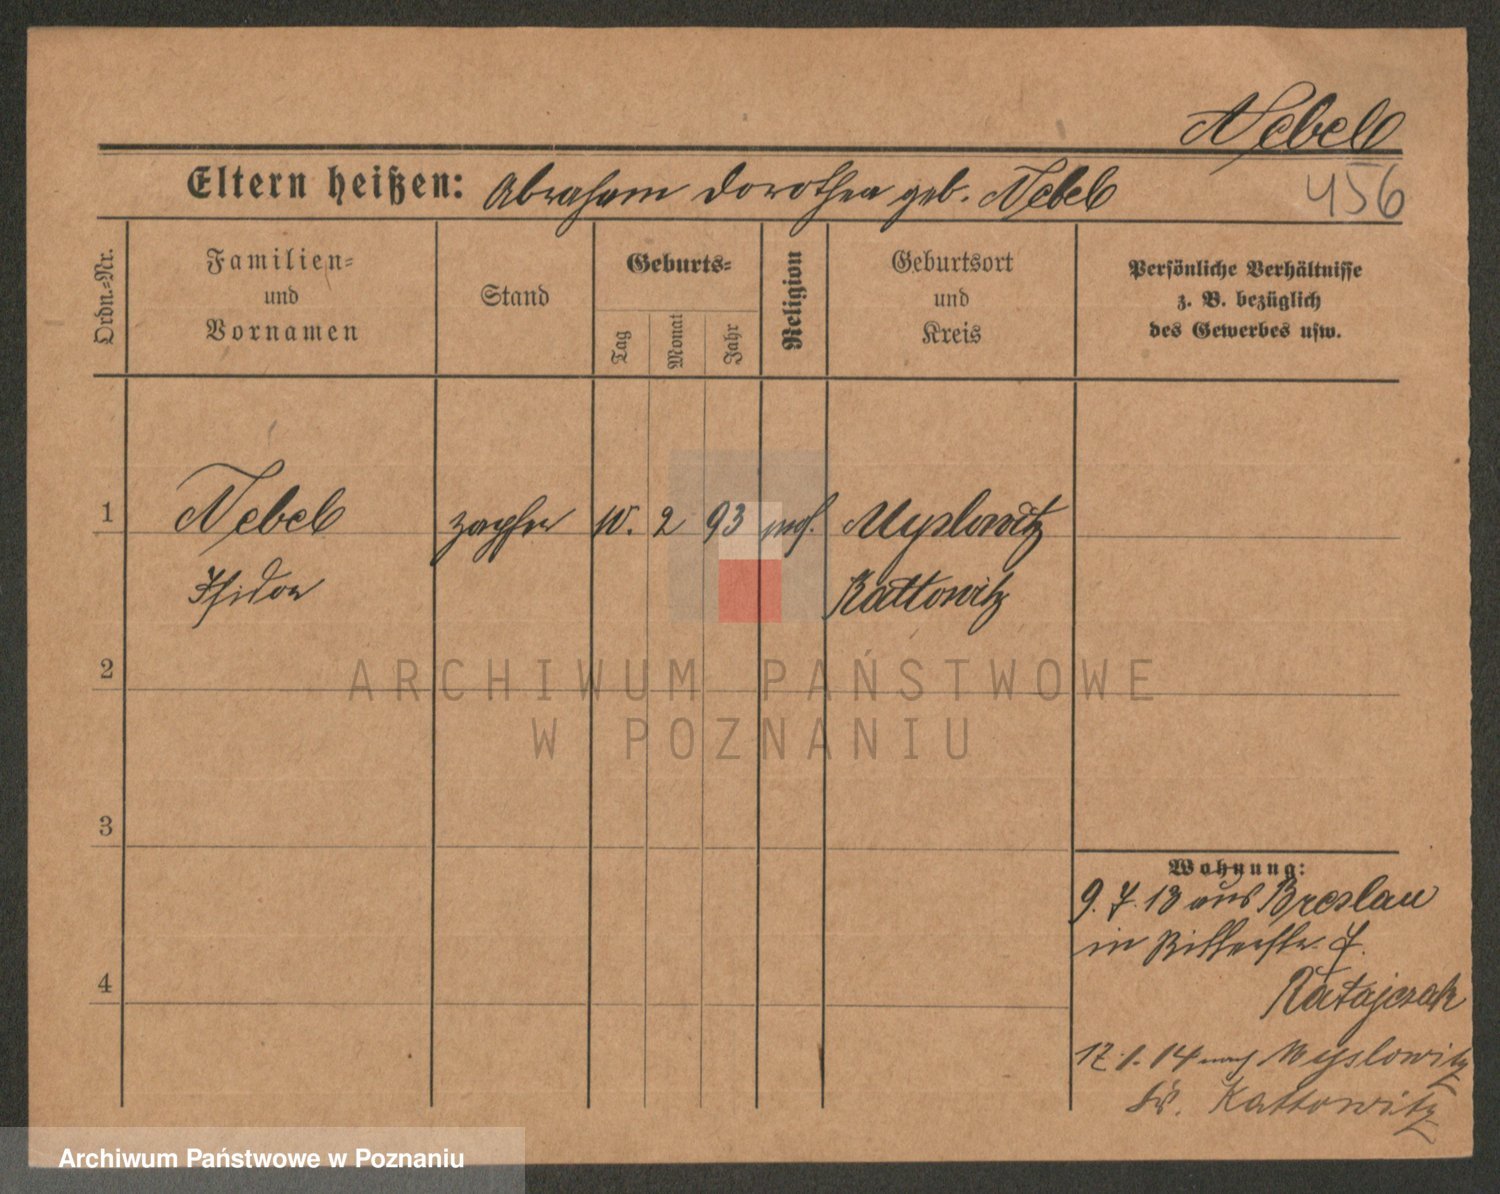 Nebel
Eltern heißen: Abraham Dorothea geb. Nebel
456
Ordn.-Nr.
Familien-
und
Vornamen
Stand
Geburts-
Tag
Monat
Jahr
Religion
Geburtsort
und
Kreis
Persönliche Verhältnisse
z. B. bezüglich
des Gewerbes usw.
1 Nebel 2 93 Myslowitz
Isidor Kattowitz
2
3
4
Wohnung:
9. 7. 13 aus Breslau
in Ritterstr. 7.
Ratajczak
17. 1. 14 nach Myslowitz
Kr. Kattowitz
ARCHIWUM PAŃSTWOWE
W POZNANIU
Archiwum Państwowe w Poznaniu